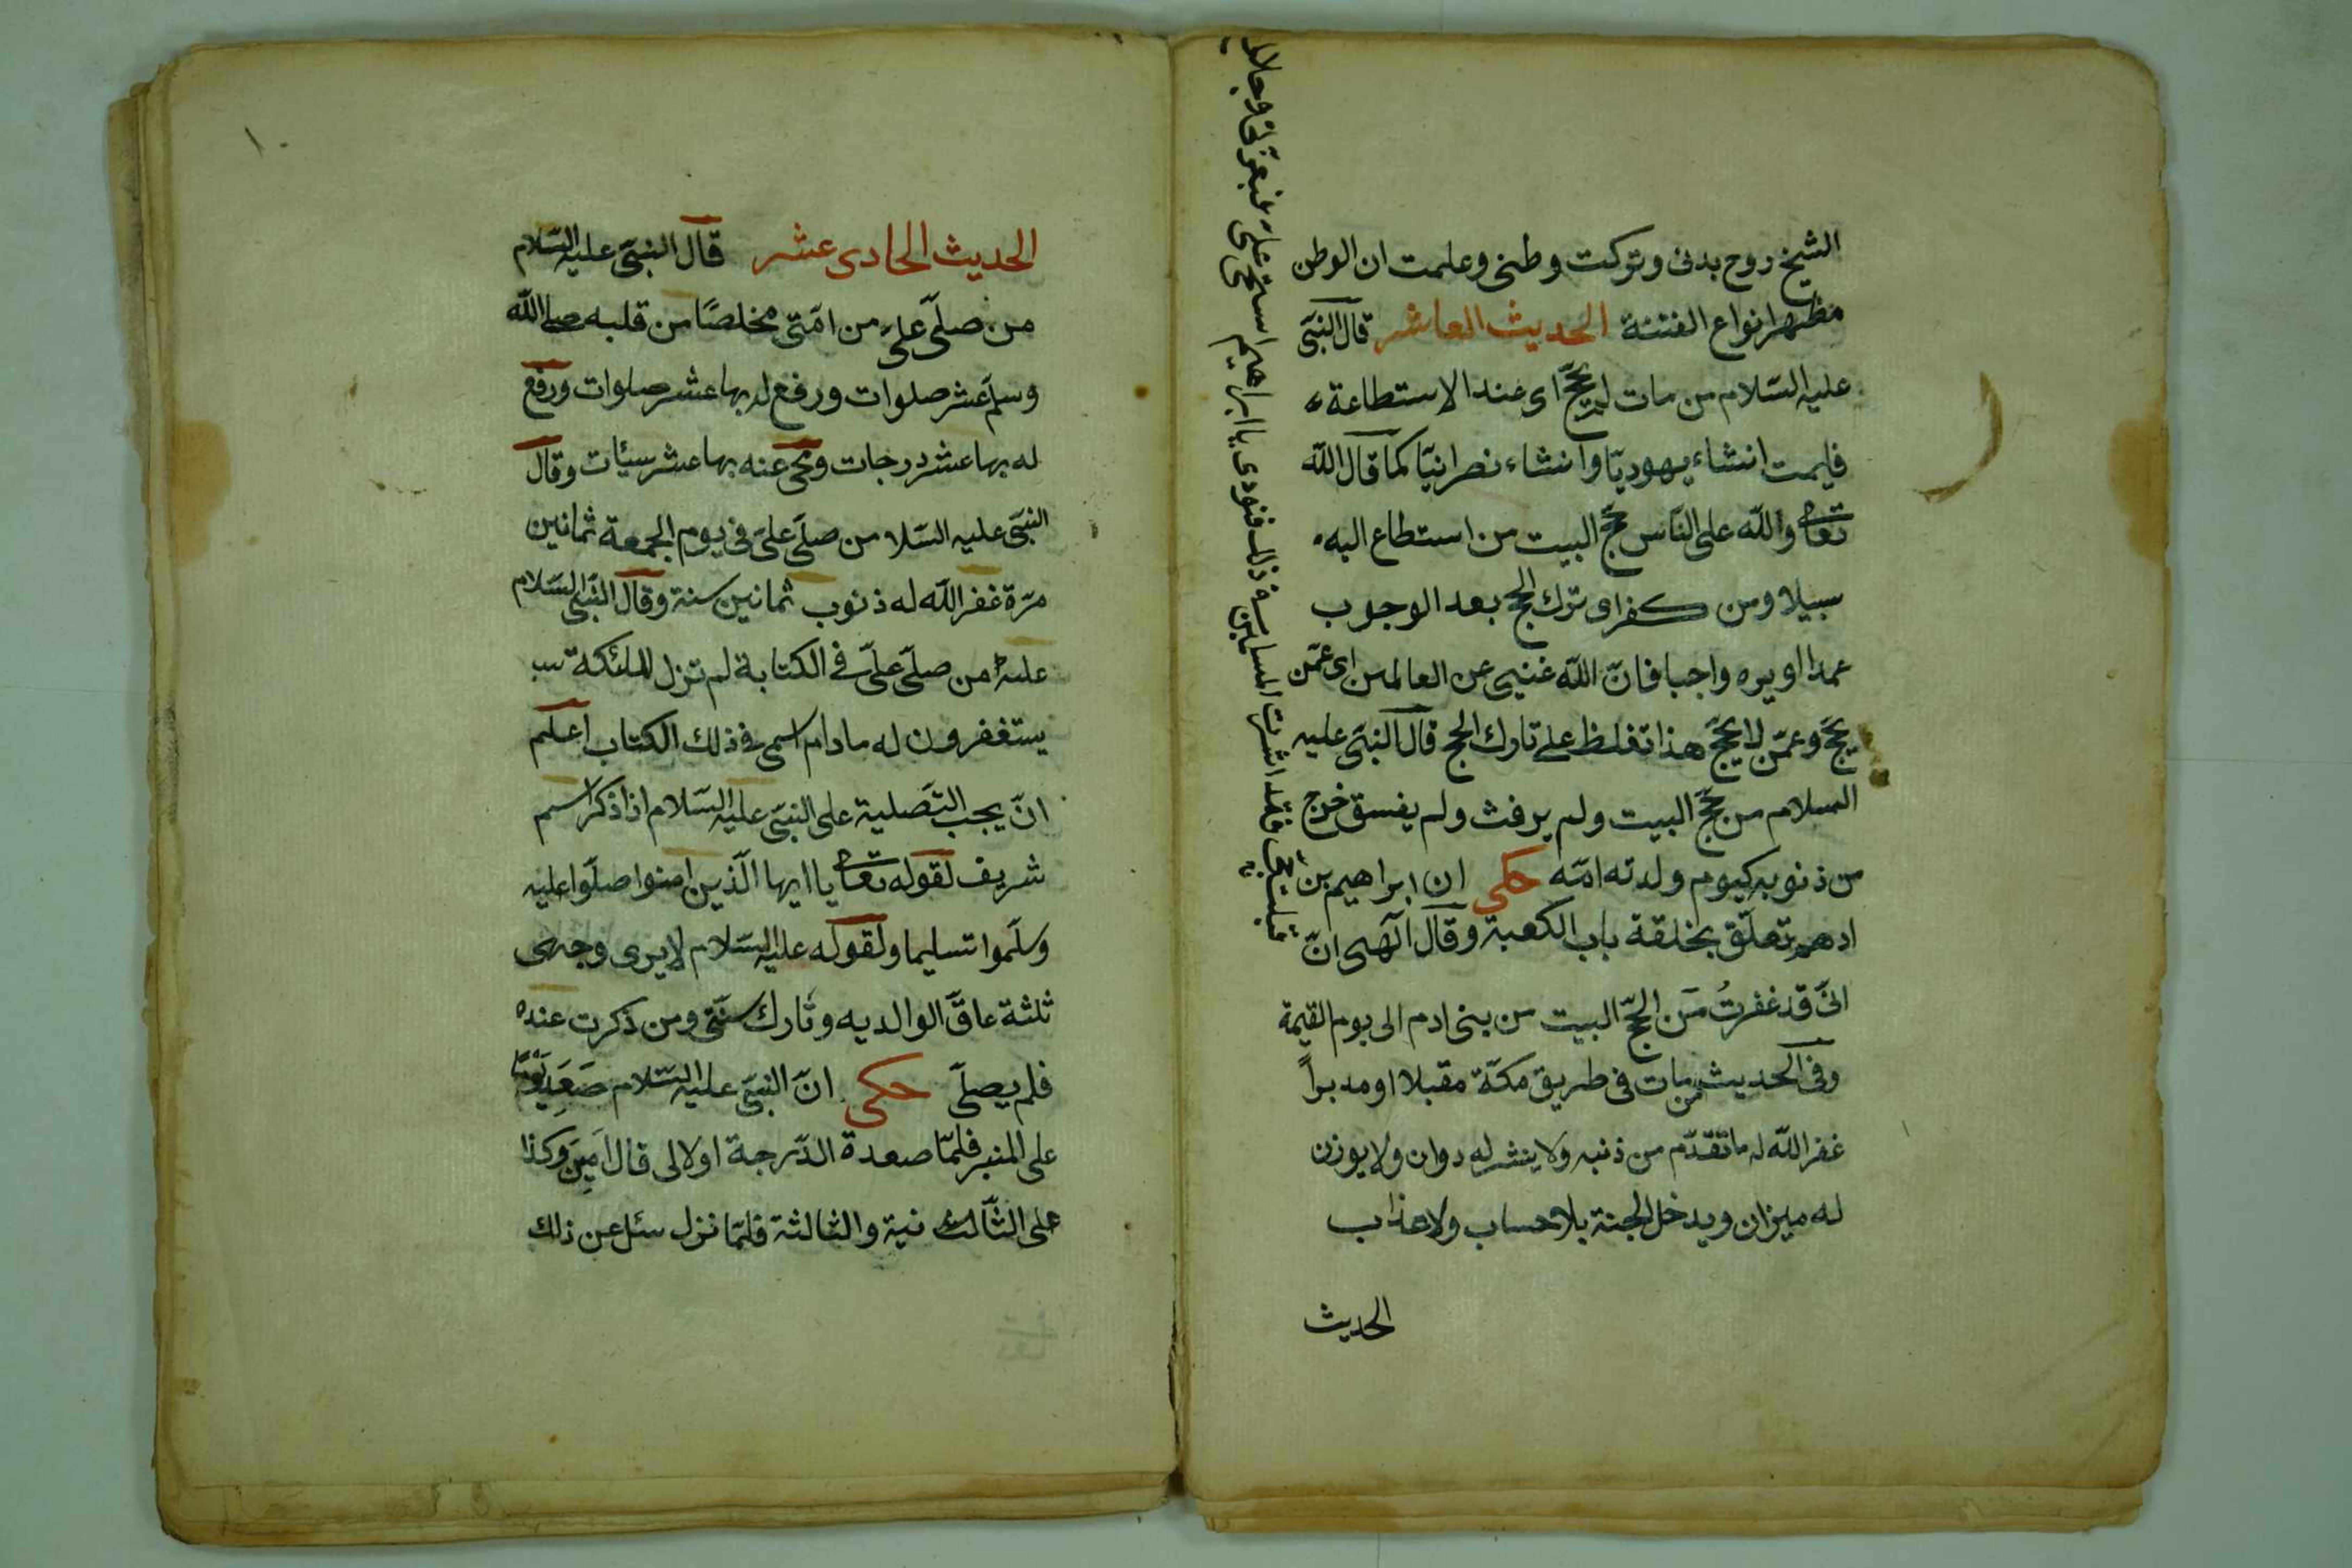 الشيخ روح بدنى وتركت وطنى وعلمت ان الوطن
مظهر انواع الفتنة الحديث العاشر قال النبى
عليه السلام من مات لم يحج اى عند الاستطاعة
فليمت انشاء يهوديا وانشاء نصرانيا كما قال الله
تعالى والله على الناس حج البيت من استطاع اليه
سبيلا ومن كفر اى ترك الحج بعد الوجوب
عمدا او يره واجبا فان الله غنيى عن العالمين اى عمن
يحج وعمن لا يحج هذا تغلظ على تارك الحج قال النبى عليه
السلام من حج البيت ولم يرفث ولم يفسق خرج
من ذنوبه كيوم ولدته امه حكى ان ابراهيم بن
ادهم تعلق بخلقة باب الكعبة وقال آلهى ان
انى قد غفرت من الحج البيت من بنى ادم الى يوم القيمة
وفى الحديث من مات فى طريق مكة مقبلا او مدبرا
غفر الله له ما تقدم من ذنبه ولا ينشر له دوان ولا يوزن
له ميزان ويدخل الجنة بلا حساب ولا عذاب
الحديث
فقد اشرت المساية ذلك فنودى يا ابراهيم استحى على فبعزتى وجلالى
١٠
الحديث الحادى عشر قال النبى عليه السلام
من صلى على من امتى مخلصا من قلبه صلى الله
وسلم عشر صلوات ورفع له بها عشر صلوات ورفع
له بها عشر درجات ومحى عنه بها عشر سيئات وقال
النبى عليه السلا من صلى على فى يوم الجمعة ثمانين
مرة غفر الله له ذنوب ثمانين سنة وقال النبى السلام
عليه من صلى على فى الكتابة لم تزل الملئكة
يستغفرون له مادام اسمى فى ذلك الكتاب اعلم
ان يجب التصلية على النبى عليه السلام اذا ذكر اسم
شريف لقوله تعالى يا ايها الذين امنوا صلوا عليه
وسلموا تسليما ولقوله عليه السلام لا يرى وجهى
ثلثة عاق الوالديه وتارك سنتى ومن ذكرت عنده
فلم يصلى حكى ان النبى عليه السلام صعد يوما
على المنبر فلما صعدة الدرجة اولالى قال امين وكذا
على الثالث نية والثالثة فلما نزل سئل عن ذلك